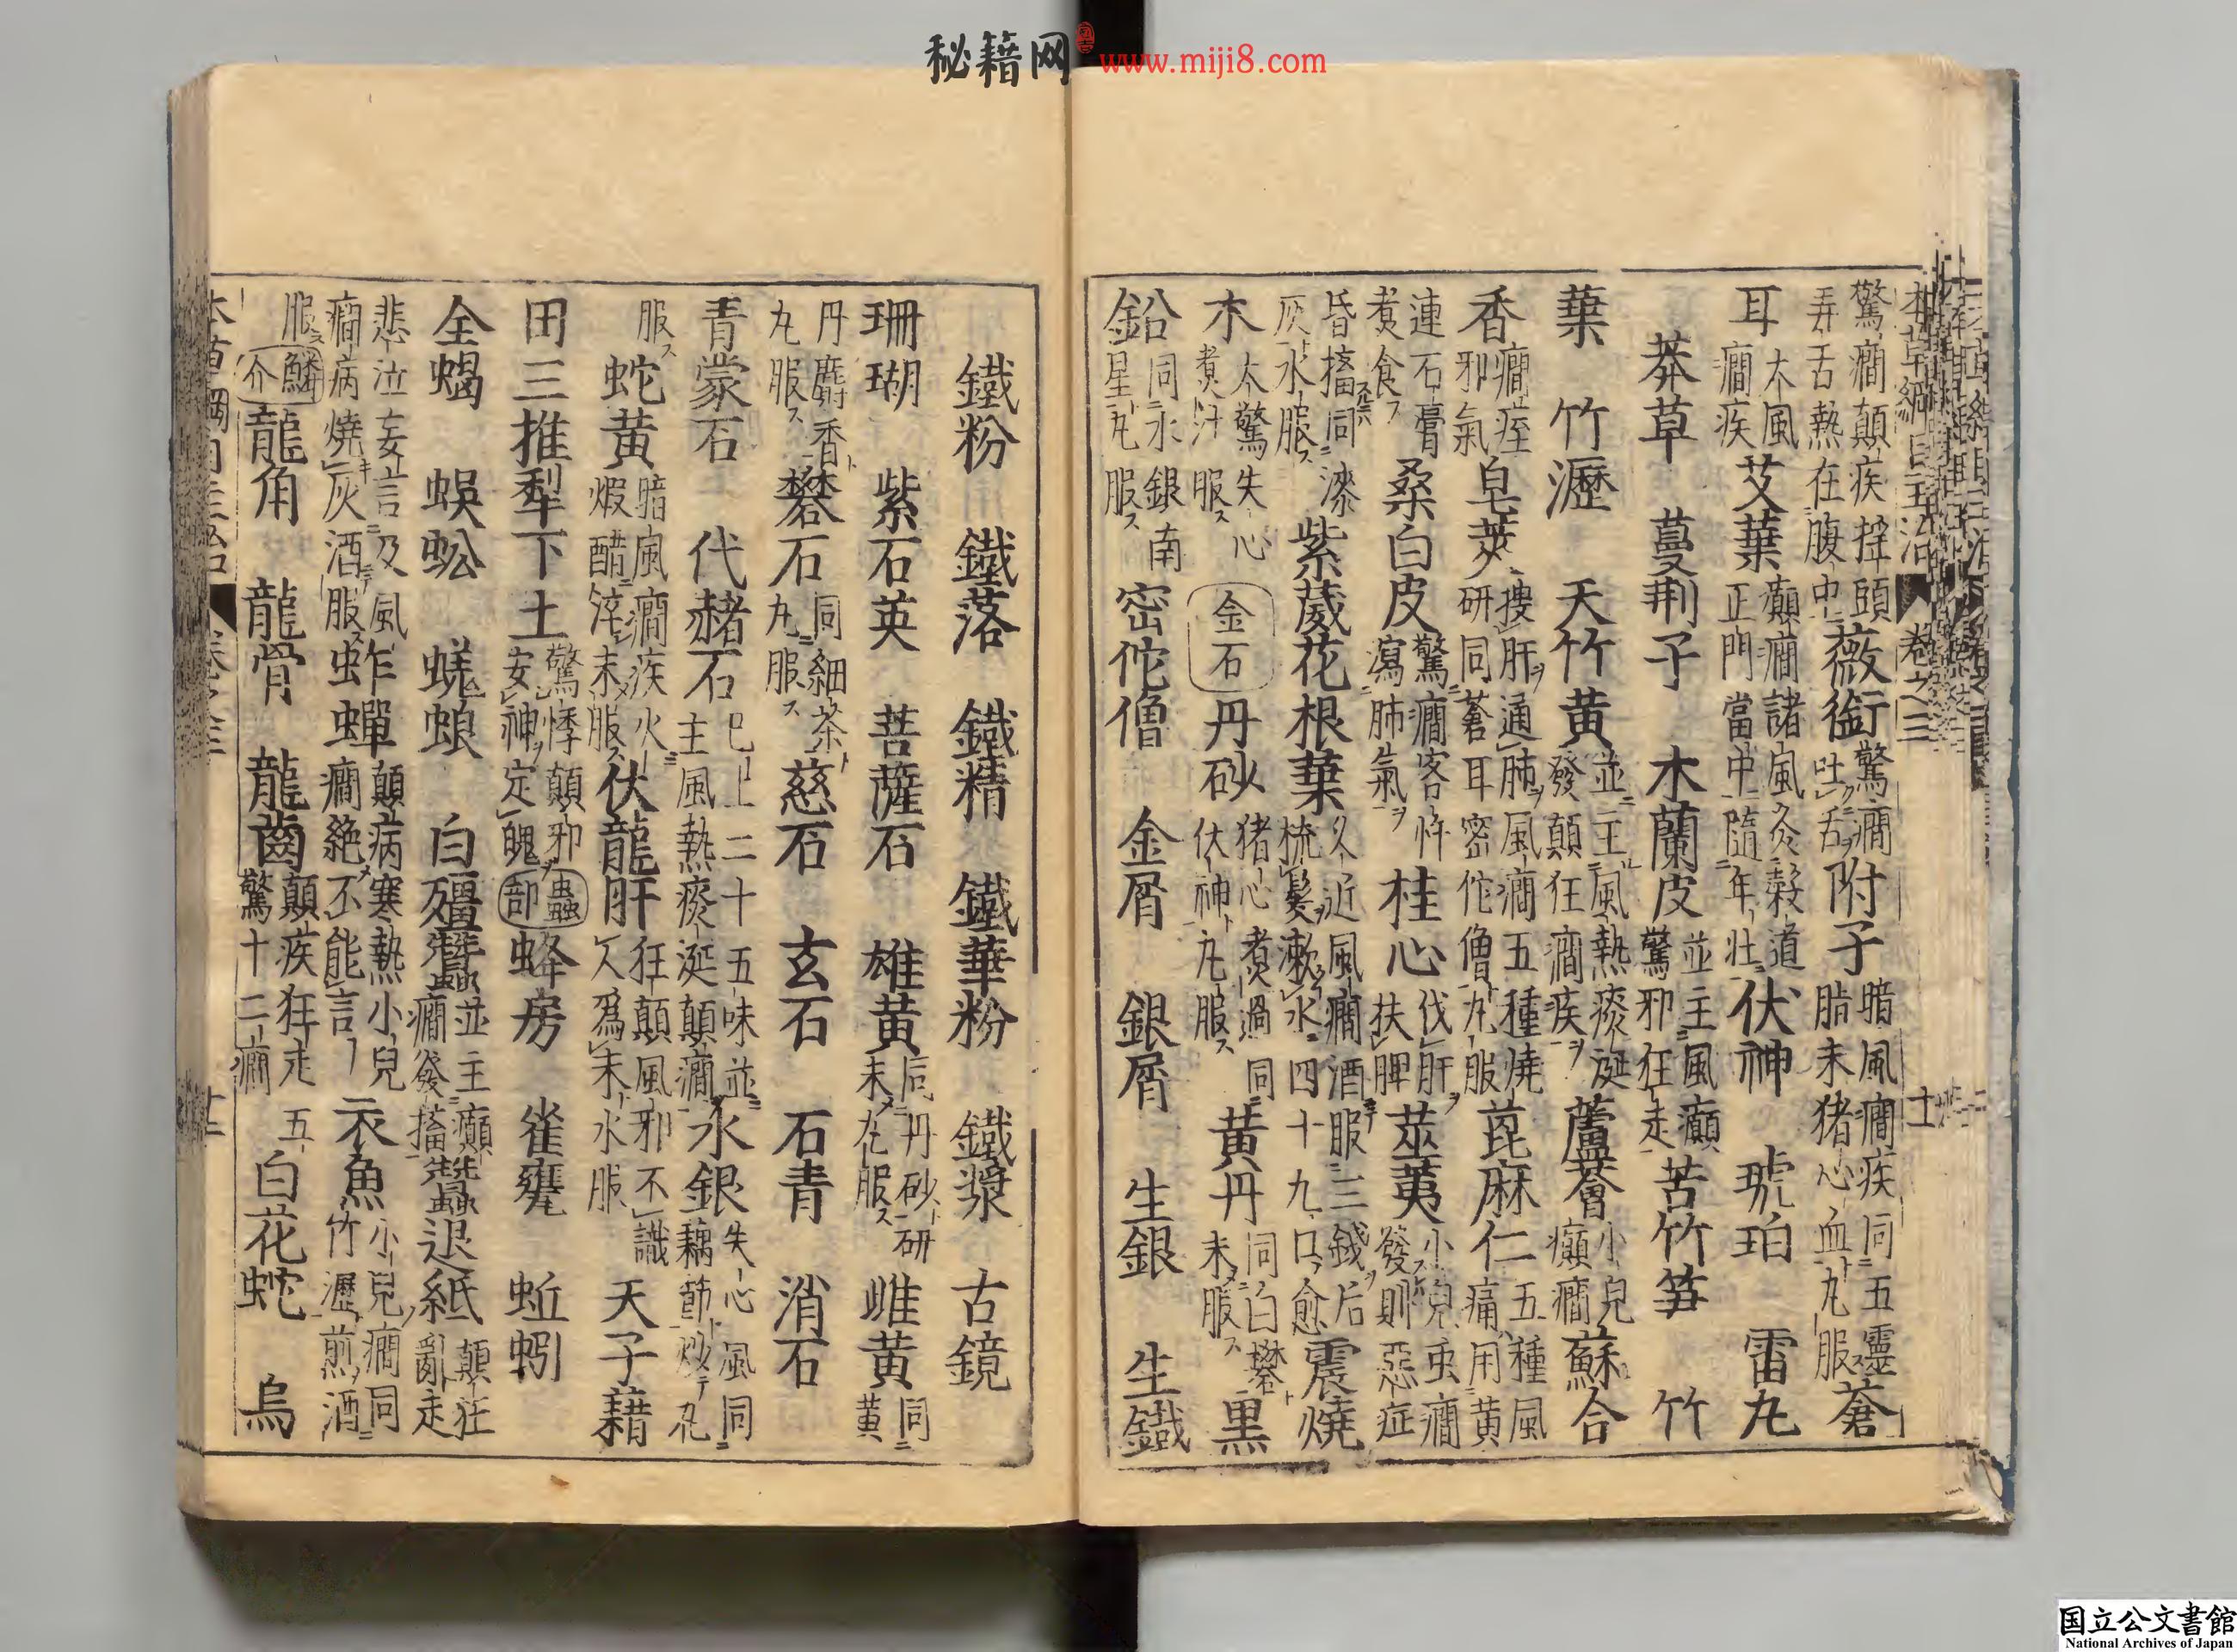 秘籍网 www.miji8.com
驚癎顛疾捽頭弄舌熱在腹中薇銜驚癎吐舌附子暗風癎疾同五靈脂末猪心血丸服蒼
耳大風癎疾艾葉癲癎諸風灸穀道正門當中隨年壯伏神 琥珀 雷丸
莽草 蔓荆子 木蘭皮並主風癲驚邪狂走苦竹笋 竹
葉 竹瀝 天竹黄並主風熱痰涎發顛狂癎疾蘆薈小兒癲癎蘇合
香癎痓邪氣皂莢搜肝通肺風癎五種燒研同蒼耳密佗僧丸服萞麻仁五種風癎用黄
連石膏煮食桑白皮驚癎客忤瀉肺氣桂心伐肝扶脾蕪荑小兒虫癎發則惡症
昏搐同漆灰水服紫葳花根葉久近風癎酒服三錢后梳髮漱水四十九口愈震燒
木大驚失心煮汁服金石丹砂猪心煮過同伏神丸服黄丹同白礬末服黑
鉛同水銀南星丸服密佗僧 金屑 銀屑 生銀 生鐵
鐵粉 鐵落 鐵精 鐵華粉 鐵漿 古鏡
珊瑚 紫石英 菩薩石 雄黄同丹砂研末丸服雌黄同黄
丹麝香丸服礬石同細茶丸服慈石 玄石 石青 消石
青蒙石 代赭石巳上二十五味並主風熱痰涎顛癎水銀失心風同藕節炒丸
服蛇黄暗風癎疾火煆醋淬末服伏龍肝狂顛風邪不識人爲末水服天子藉
田三推犁下土驚悸顛邪安神定魄蟲部蜂房 雀甕 蚯蚓
全蝎 蜈蚣 蜣蜋 白殭蠶並主癲癎發搐蠶退紙顛狂亂走
悲泣妄言及風癎病燒灰酒服蚱蟬顛病寒熱小兒癎絶不能言衣魚小兒癎同竹瀝煎酒
服鱗介龍角 龍骨 龍齒顛疾狂走驚十二癎五白花蛇 烏
本草綱目主治 卷之三
国立公文書館
National Archives of Japan